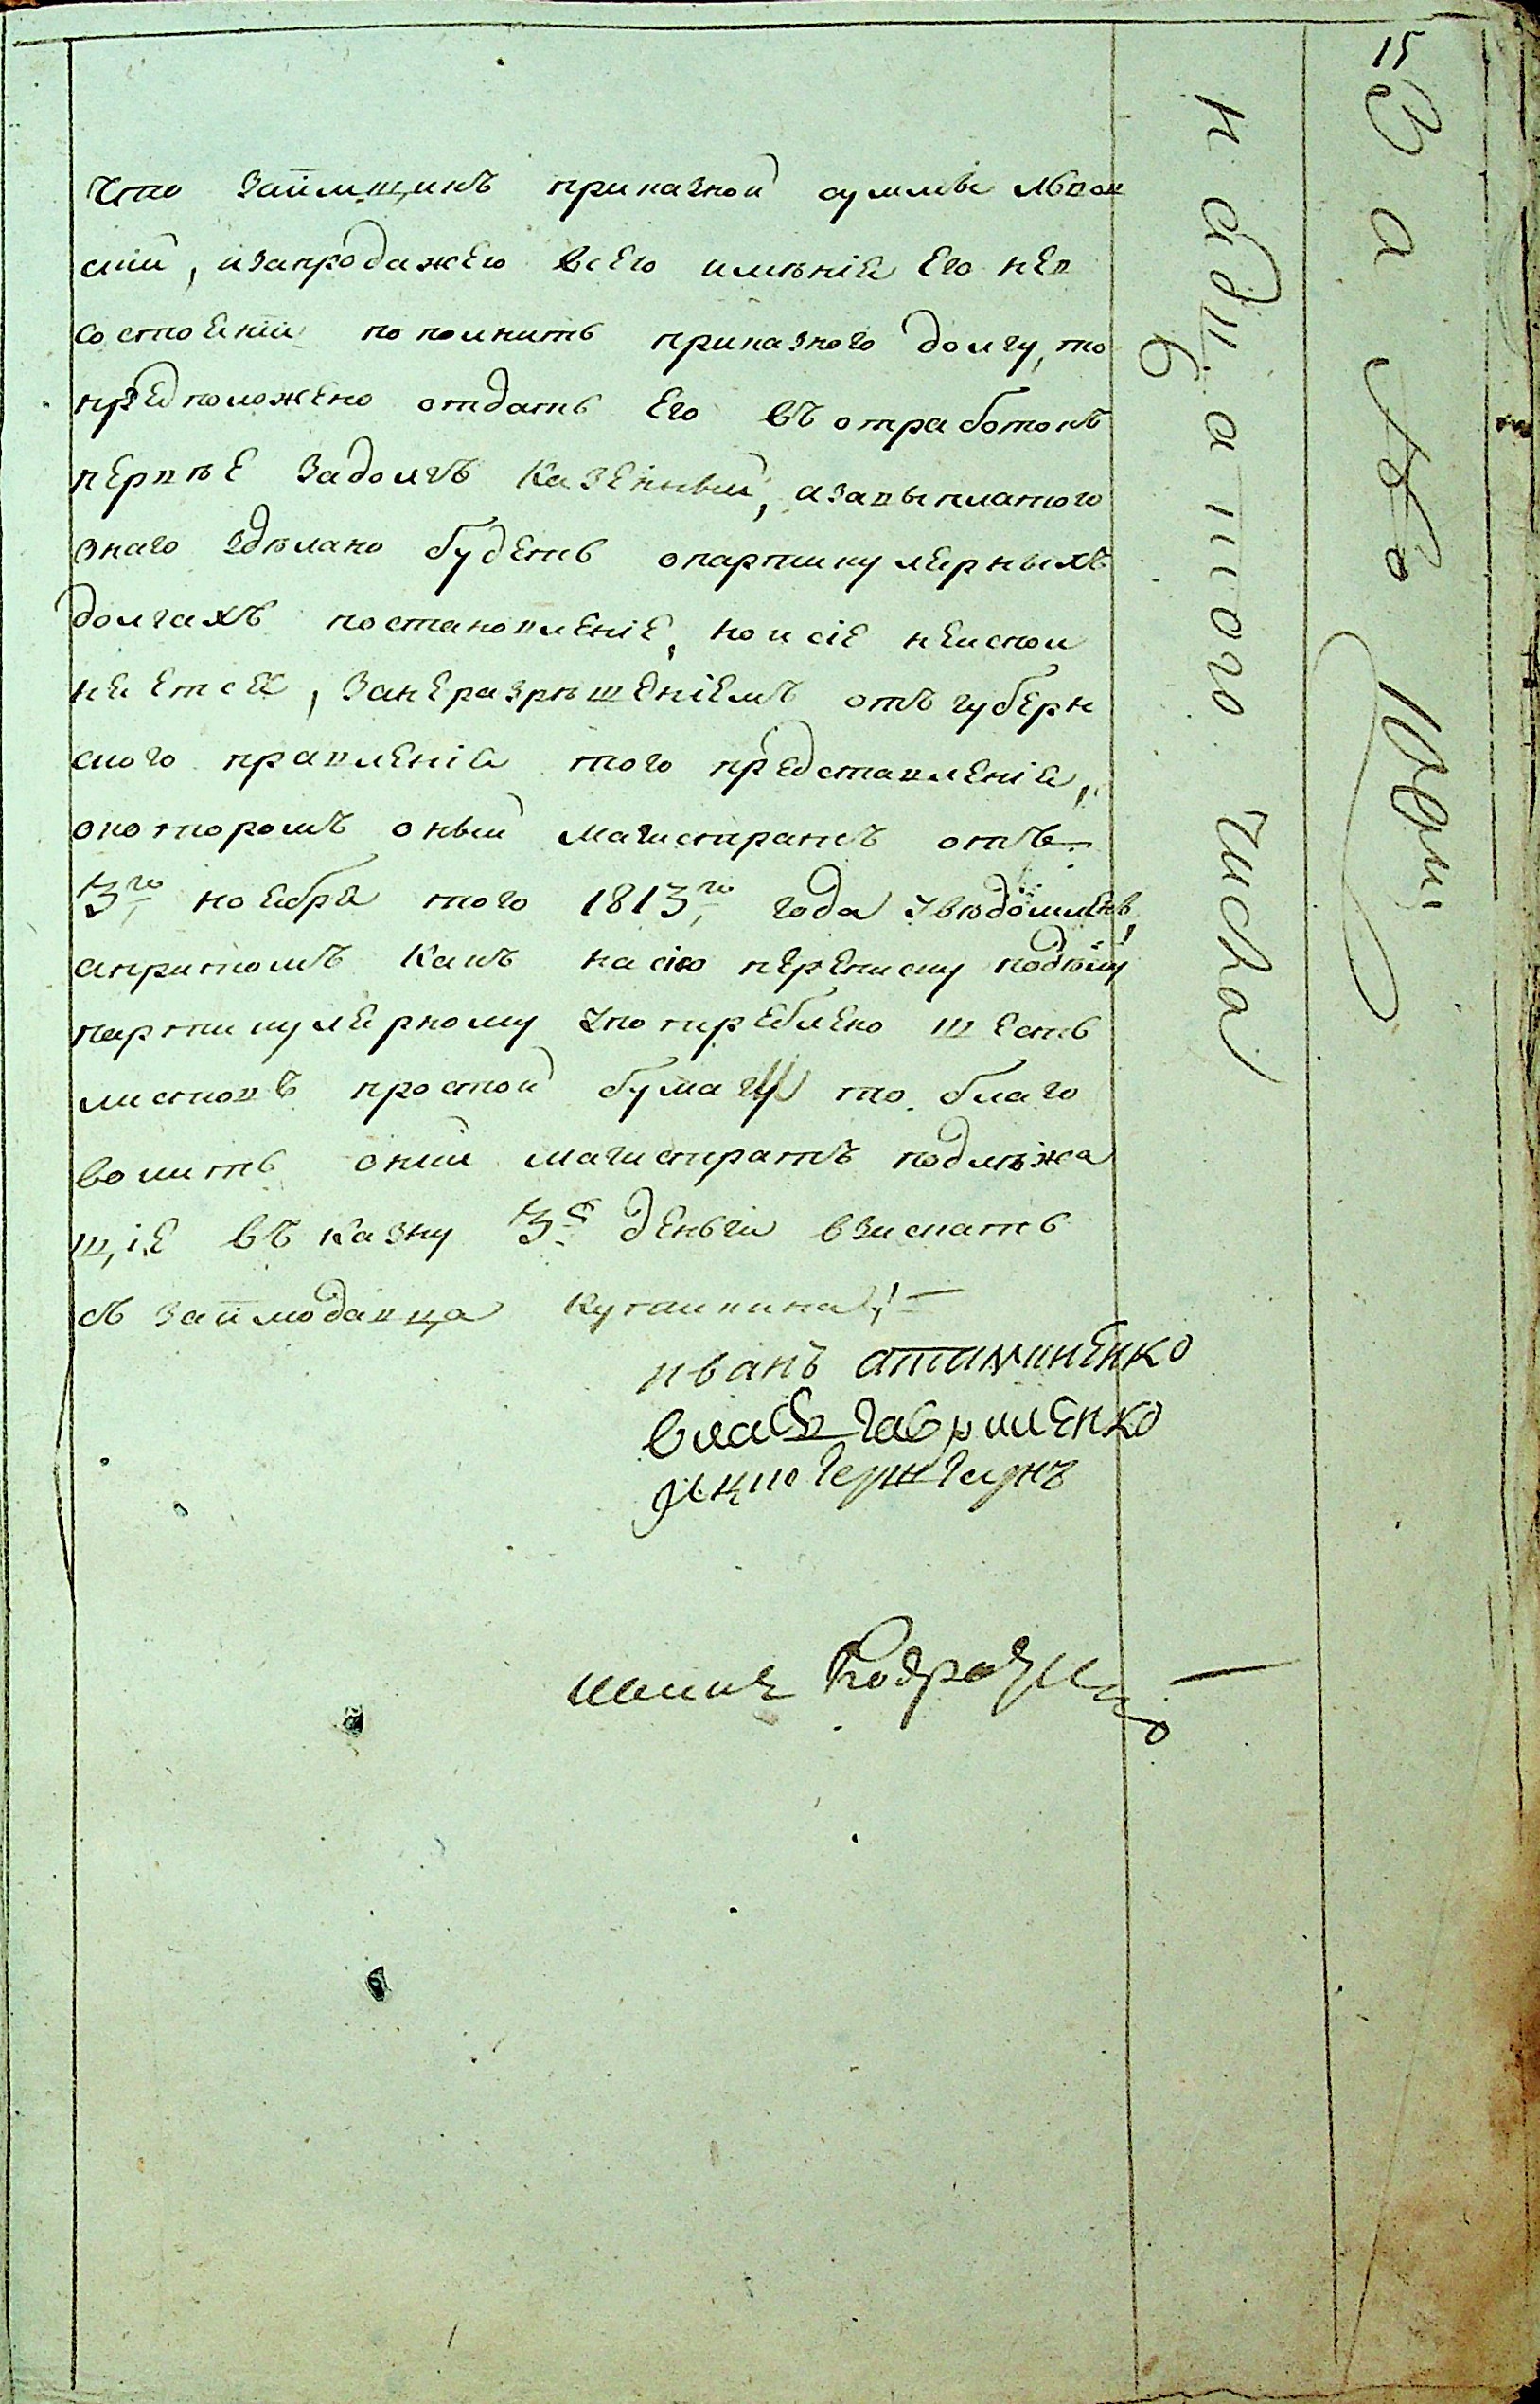 что займщикъ приказной суммы львов
скій, изапродажею всего имѣнія его нев
состояніи пополнить приказного долгу, то
предположено отдать его въ отработокъ
первѣе задолгъ казенный, азавыплатого
онаго здѣлано будетъ опартикулярныхъ
долгахъ постановленіе, но исіе неиспол
няется, занеразрѣшеніемъ отъ губерн
ского правленія того представленія,
окоторомъ оный магистратъ отъ
3го ноября того 1813го года увѣдомленъ,
апритомъ какъ насію переписку подѣлу
партикулярному употреблено шесть
листовъ простой бумагу то благо
волитъ оній магистратъ подлѣжа
щіе въ казну 3е деньги взискать
съ займодавца
иванъ
власъ гавриленко
15
надцатого числа